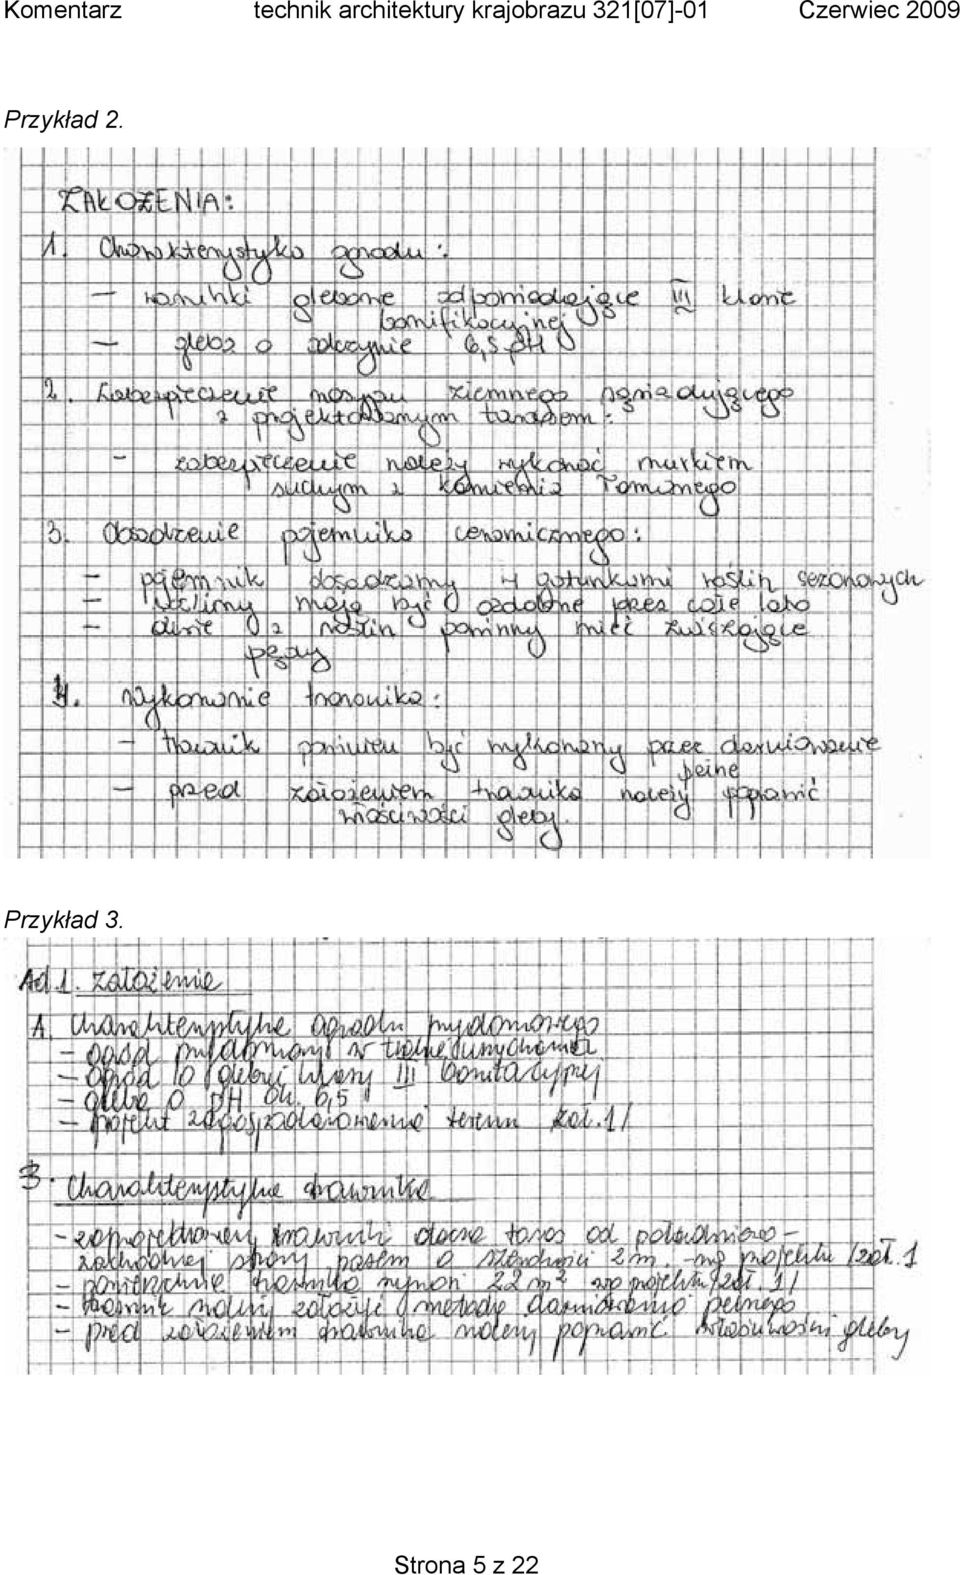 Komentarz technik architektury krajobrazu 321[07]-01 Czerwiec 2009
Przykład 2.
ZAŁOŻENIA:
1. Charakterystyka ogrodu:
– warunki glebowe odpowiadające III klasie
bonifikacyjnej
– gleba o odczynie 6,5 pH
2. Zabezpieczenie nasypu ziemnego sąsiadującego
z projektowanym tarasem:
– zabezpieczenie należy wykonać murkiem
suchym z kamienia łamanego
3. Obsadzenie pojemnika ceramicznego:
– pojemnik obsadzamy 4 gatunkami roślin sezonowych
– rośliny mają być ozdobne przez całe lato
– dwie z roślin powinny mieć zwisające
pędy
4. Wykonanie trawnika:
– trawnik powinien być wykonany przez darniowanie
pełne
– przed założeniem trawnika należy poprawić
właściwości gleby.
Przykład 3.
Ad.1. Założenie
A. Charakterystyka ogrodu przydomowego
– ogród przydomowy w trakcie urządzania
– ogród o glebie klasy III bonitacyjnej
– gleba o pH ok. 6,5
– projekt zagospodarowania terenu zał.1/
B. Charakterystyka trawnika
– zaprojektowany trawnik otacza taras od południowo-
zachodniej strony pasem o szerokości 2m. – wg projektu /zał.1
– powierzchnia trawnika wynosi 22 m² wg projektu /zał. 1/
– trawnik należy założyć metodą darniowania pełnego
– przed założeniem trawnika należy poprawić właściwości gleby
Strona 5 z 22